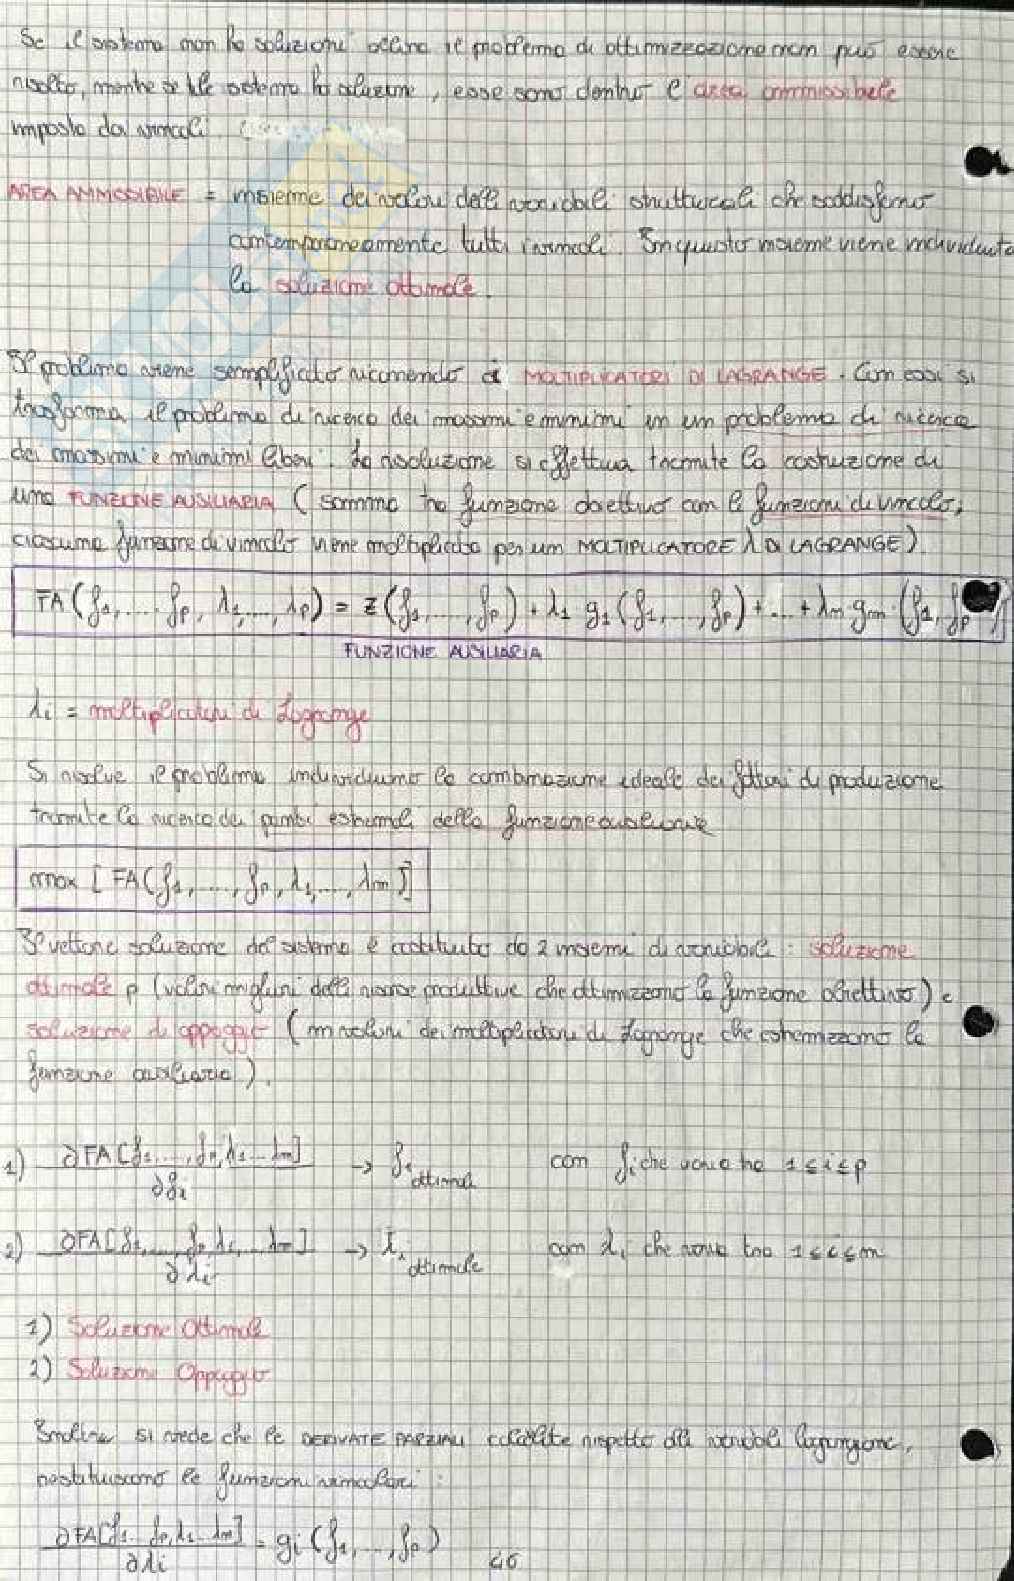 Se il sistema non ha soluzioni allora il problema di ottimizzazione non può essere
risolto, mentre se il sistema ha soluzione, esse sono dentro l'area ammissibile
imposta dai vincoli.
AREA AMMISSIBILE = insieme dei valori delle variabili strutturali che soddisfano
contemporaneamente tutti i vincoli. In questo insieme viene individuata
la soluzione ottimale.
Il problema viene semplificato ricorrendo ai MOLTIPLICATORI DI LAGRANGE. Con essi si
trasforma il problema di ricerca dei massimi e minimi in un problema di ricerca
dei massimi e minimi liberi. La risoluzione si effettua tramite la costruzione di
una FUNZIONE AUSILIARIA (somma tra funzione obiettivo con le funzioni di vincolo,
ciascuna funzione di vincolo viene moltiplicata per un MOLTIPLICATORE λ DI LAGRANGE).
FA(f1,.... fp, λ1,...., λp) = z(f1,....,fp) + λ1 g1(f1,....,fp) + ... + λm gm (f1, fp)
FUNZIONE AUSILIARIA
λi = moltiplicatori di Lagrange
Si risolve il problema individuando la combinazione ideale dei fattori di produzione
tramite la ricerca dei punti estremali della funzione ausiliaria
max [FA(f1,....,fp,λ1,...,λm)]
Il vettore soluzione del sistema è costituito da 2 insiemi di variabili: soluzione
ottimale p (valori migliori delle risorse produttive che ottimizzano la funzione obiettivo) e
soluzione di appoggio (m valori dei moltiplicatori di Lagrange che estremizzano la
funzione ausiliaria).
1) ∂FA[f1,...,fp,λ1...λm] / ∂fi → fi ottimali con fi che varia tra 1≤i≤p
2) ∂FA[f1,...,fp,λ1,...λm] / ∂λi → λi ottimale con λi che varia tra 1≤i≤m
1) Soluzione Ottimale
2) Soluzione Appoggio
Inoltre si vede che le DERIVATE PARZIALI calcolate rispetto alle variabili lagrangiane,
restituiscono le funzioni vincolari:
∂FA[f1...fp,λ1...λm] / ∂λi = gi(f1,...,fp)